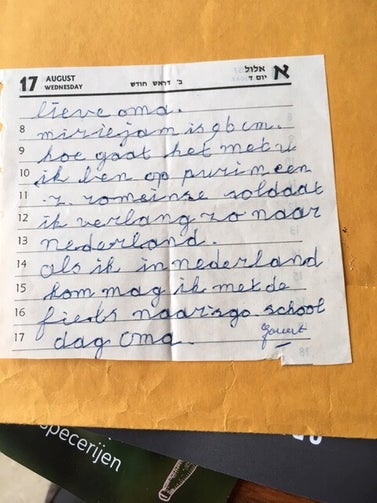 17 AUGUST WEDNESDAY ב' דראש חודש אלול יום ד' א
lieve oma.
8 mirjejam is 96 cm.
9 hoe gaat het met u
10 ik ben op purim een
11 romeinse soldaat
12 ik verlang zo naar
13 nederland.
14 als ik in nederland
15 kom mag ik met de
16 fiets naar school
17 dag oma.
specerijen